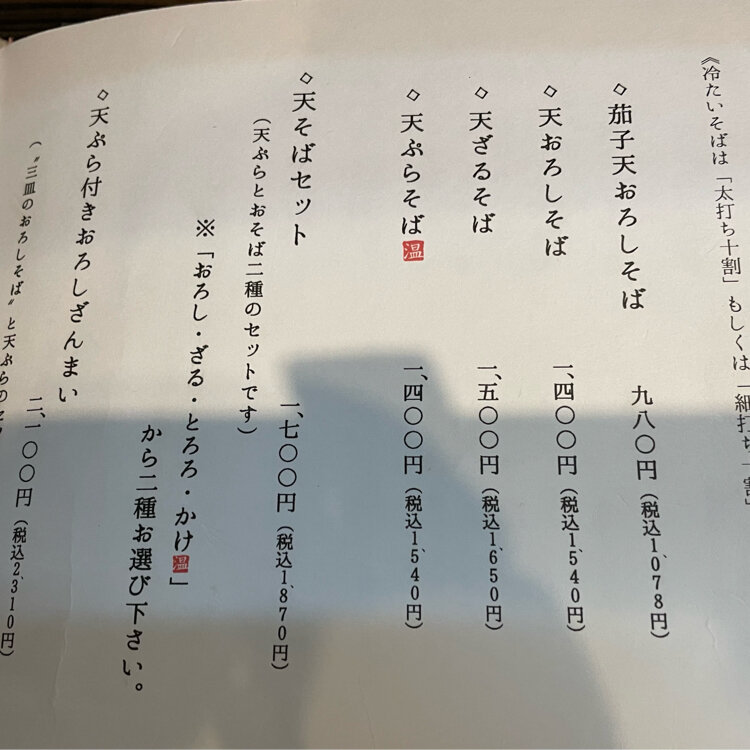 《冷たいそばは「太打ち十割」もしくは「細打ち
◇茄子天おろしそば 九八〇円（税込1,078円）
◇天おろしそば 一、四〇〇円（税込1,540円）
◇天ざるそば 一、五〇〇円（税込1,650円）
◇天ぷらそば温 一、四〇〇円（税込1,540円）
◇天そばセット 一、七〇〇円（税込1,870円）
（天ぷらとおそば二種のセットです）
※「おろし・ざる・とろろ・かけ温」
から二種お選び下さい。
◇天ぷら付きおろしざんまい 二、一〇〇円（税込2,310円）
（〝三皿のおろしそば〟と天ぷらの